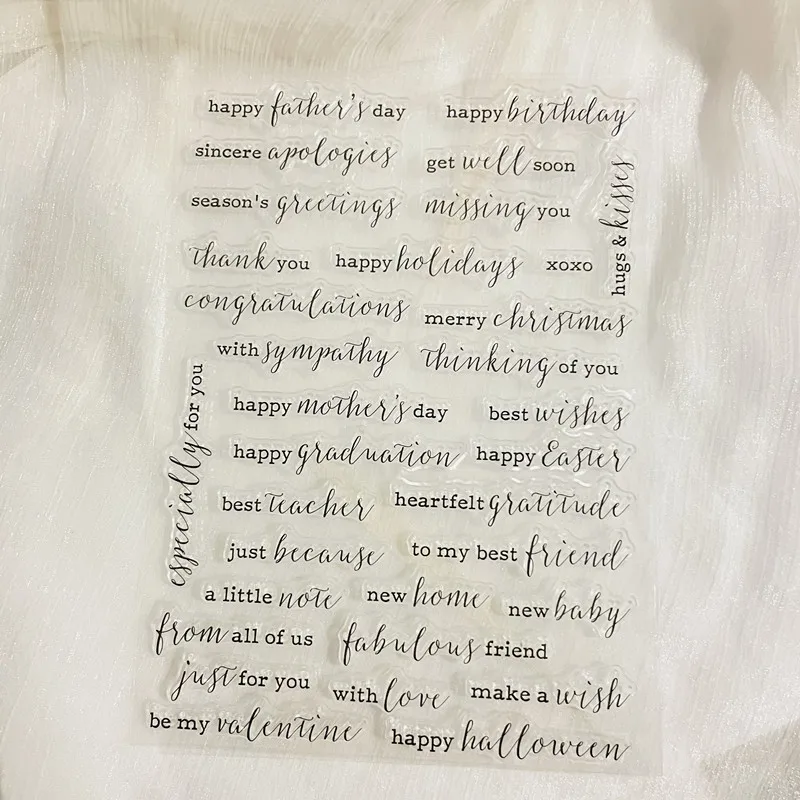 happy father's day happy birthday
sincere apologies get well soon
hugs & kisses
season's greetings missing you
thank you happy holidays xoxo
congratulations merry christmas
with sympathy thinking of you
especially for you
happy mother's day best wishes
happy graduation happy Easter
best teacher heartfelt gratitude
just because to my best friend
a little note new home new baby
from all of us fabulous friend
just for you with love make a wish
be my valentine happy halloween